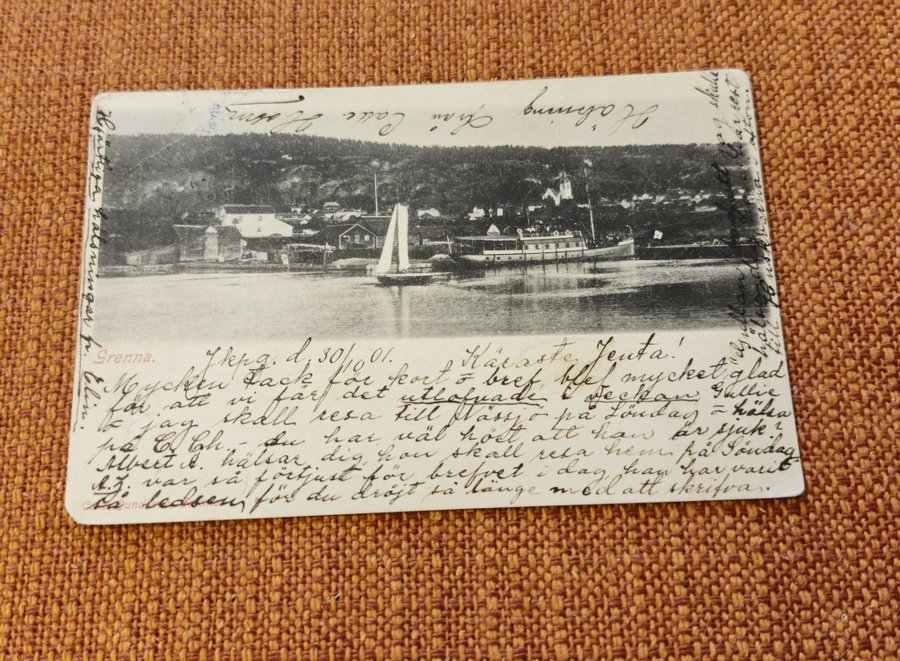 Hälsning från Calle Holm
Hjertliga hälsningar fr. Elin
Grenna.
Jkpg. d. 30/10 01. Käraste Jenta!
Mycken tack för kort o bref, blef mycket glad
för, att vi får det utlofvade i veckan Gullie
o jag skall resa till Nässjö på Söndag o hälsa
på C. Ch - du har väl hört att han är sjuk?
Albert A. hälsar dig han skall resa hem på Söndag
A. Z. var så förtjust för brefvet i dag han har varit
så ledsen för du dröjt så länge med att skrifva.
skulle
hälsa
till